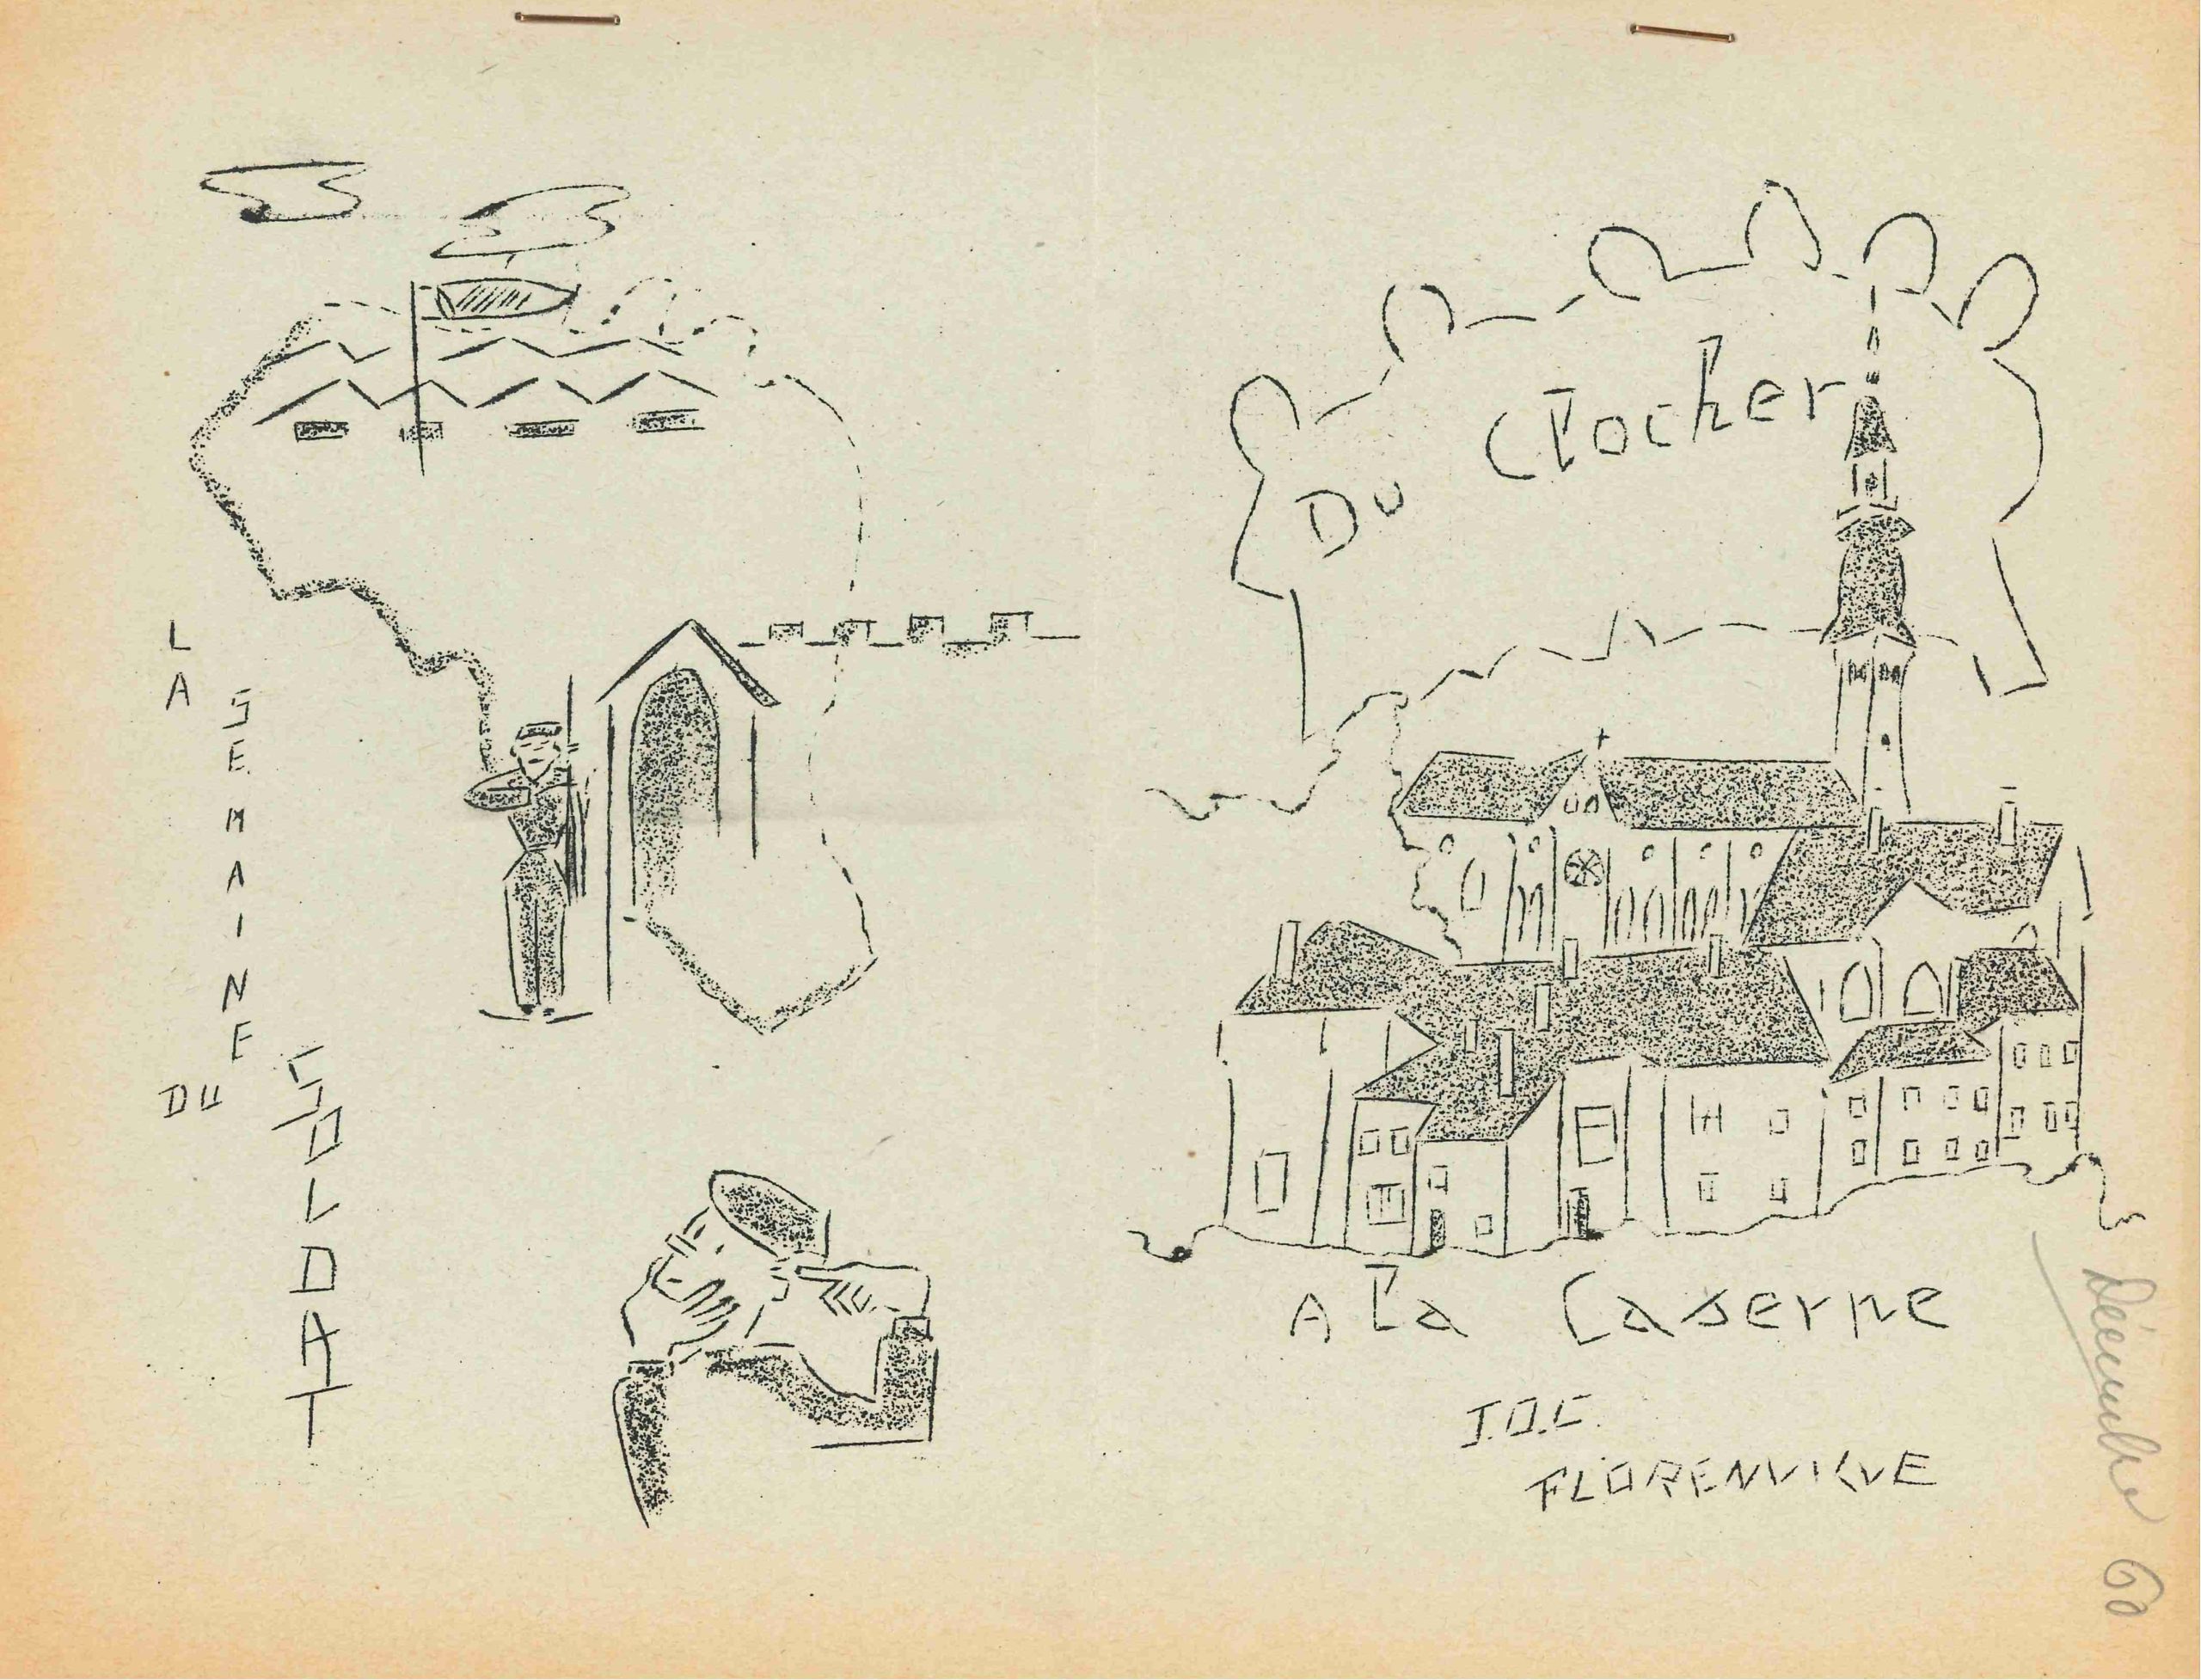 LA
SEMAINE
DU
SOLDAT
Du Clocher
A la Caserne
J.O.C.
FLORENVILLE
Décembre 60